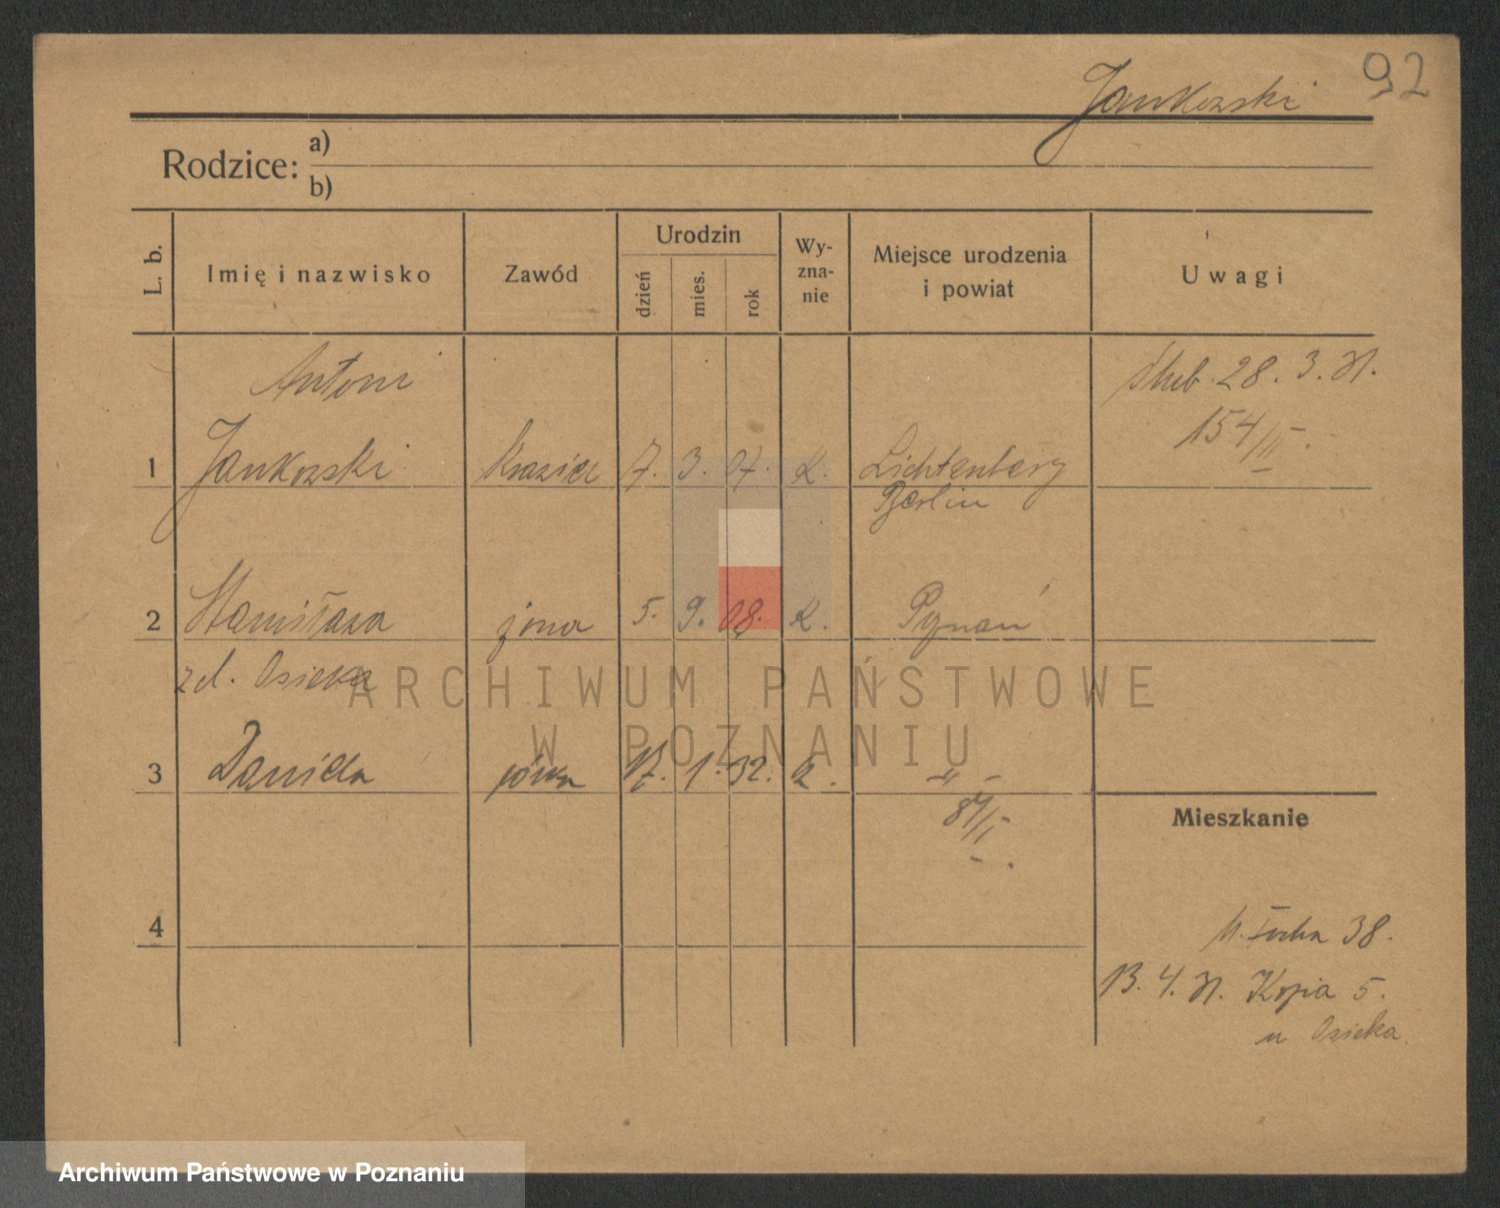 92
Jankowski
Rodzice: a)
b)
L. b.
Imię i nazwisko
Zawód
Urodzin
dzień
mies.
rok
Wy-
zna-
nie
Miejsce urodzenia
i powiat
Uwagi
Antoni
ślub 28. 3. 31.
154/III.
1 Jankowski krawiec 7. 3. 07. k. Lichtenberg
Berlin
2 Stanisława żona 5. 9. 08. k. Poznań
zd. Osiecka
ARCHIWUM PAŃSTWOWE
W POZNANIU
3 Daniela córka 17. 1. 32. k. –„–
Mieszkanie
4
38.
13. 4. 31. Kopia 5.
u Osiecka
Archiwum Państwowe w Poznaniu